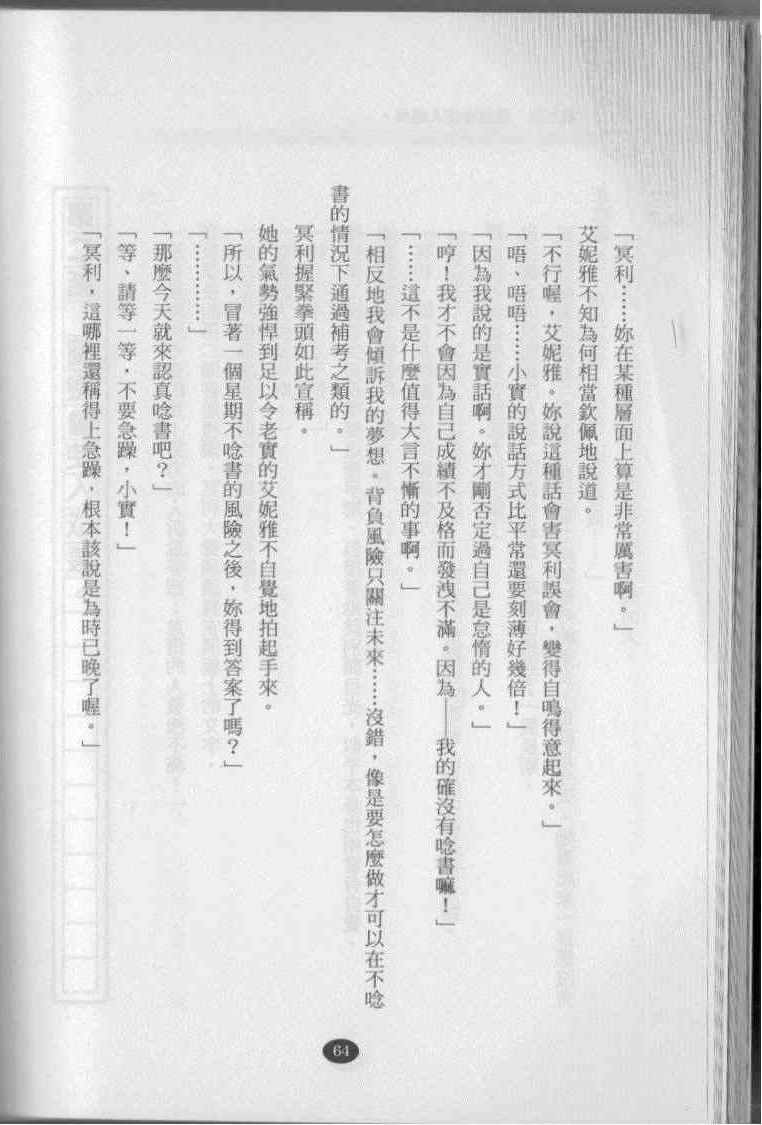 「冥利……妳在某種層面上算是非常厲害啊。」
艾妮雅不知為何相當欽佩地說道。
「不行喔，艾妮雅。妳說這種話會害冥利誤會，變得自鳴得意起來。」
「唔、唔唔……小實的說話方式比平常還要刻薄好幾倍！」
「因為我說的是實話啊。妳才剛否定過自己是怠惰的人。」
「哼！我才不會因為自己成績不及格而發洩不滿。因為——我的確沒有唸書嘛！」
「……這不是什麼值得大言不慚的事啊。」
「相反地我會傾訴我的夢想。背負風險只關注未來……沒錯，像是要怎麼做才可以在不唸
書的情況下通過補考之類的。」
冥利握緊拳頭如此宣稱。
她的氣勢強悍到足以令老實的艾妮雅不自覺地拍起手來。
「所以，冒著一個星期不唸書的風險之後，妳得到答案了嗎？」
「…………」
「那麼今天就來認真唸書吧？」
「等、請等一等，不要急躁，小實！」
「冥利，這哪裡還稱得上急躁，根本該說是為時已晚了喔。」
64